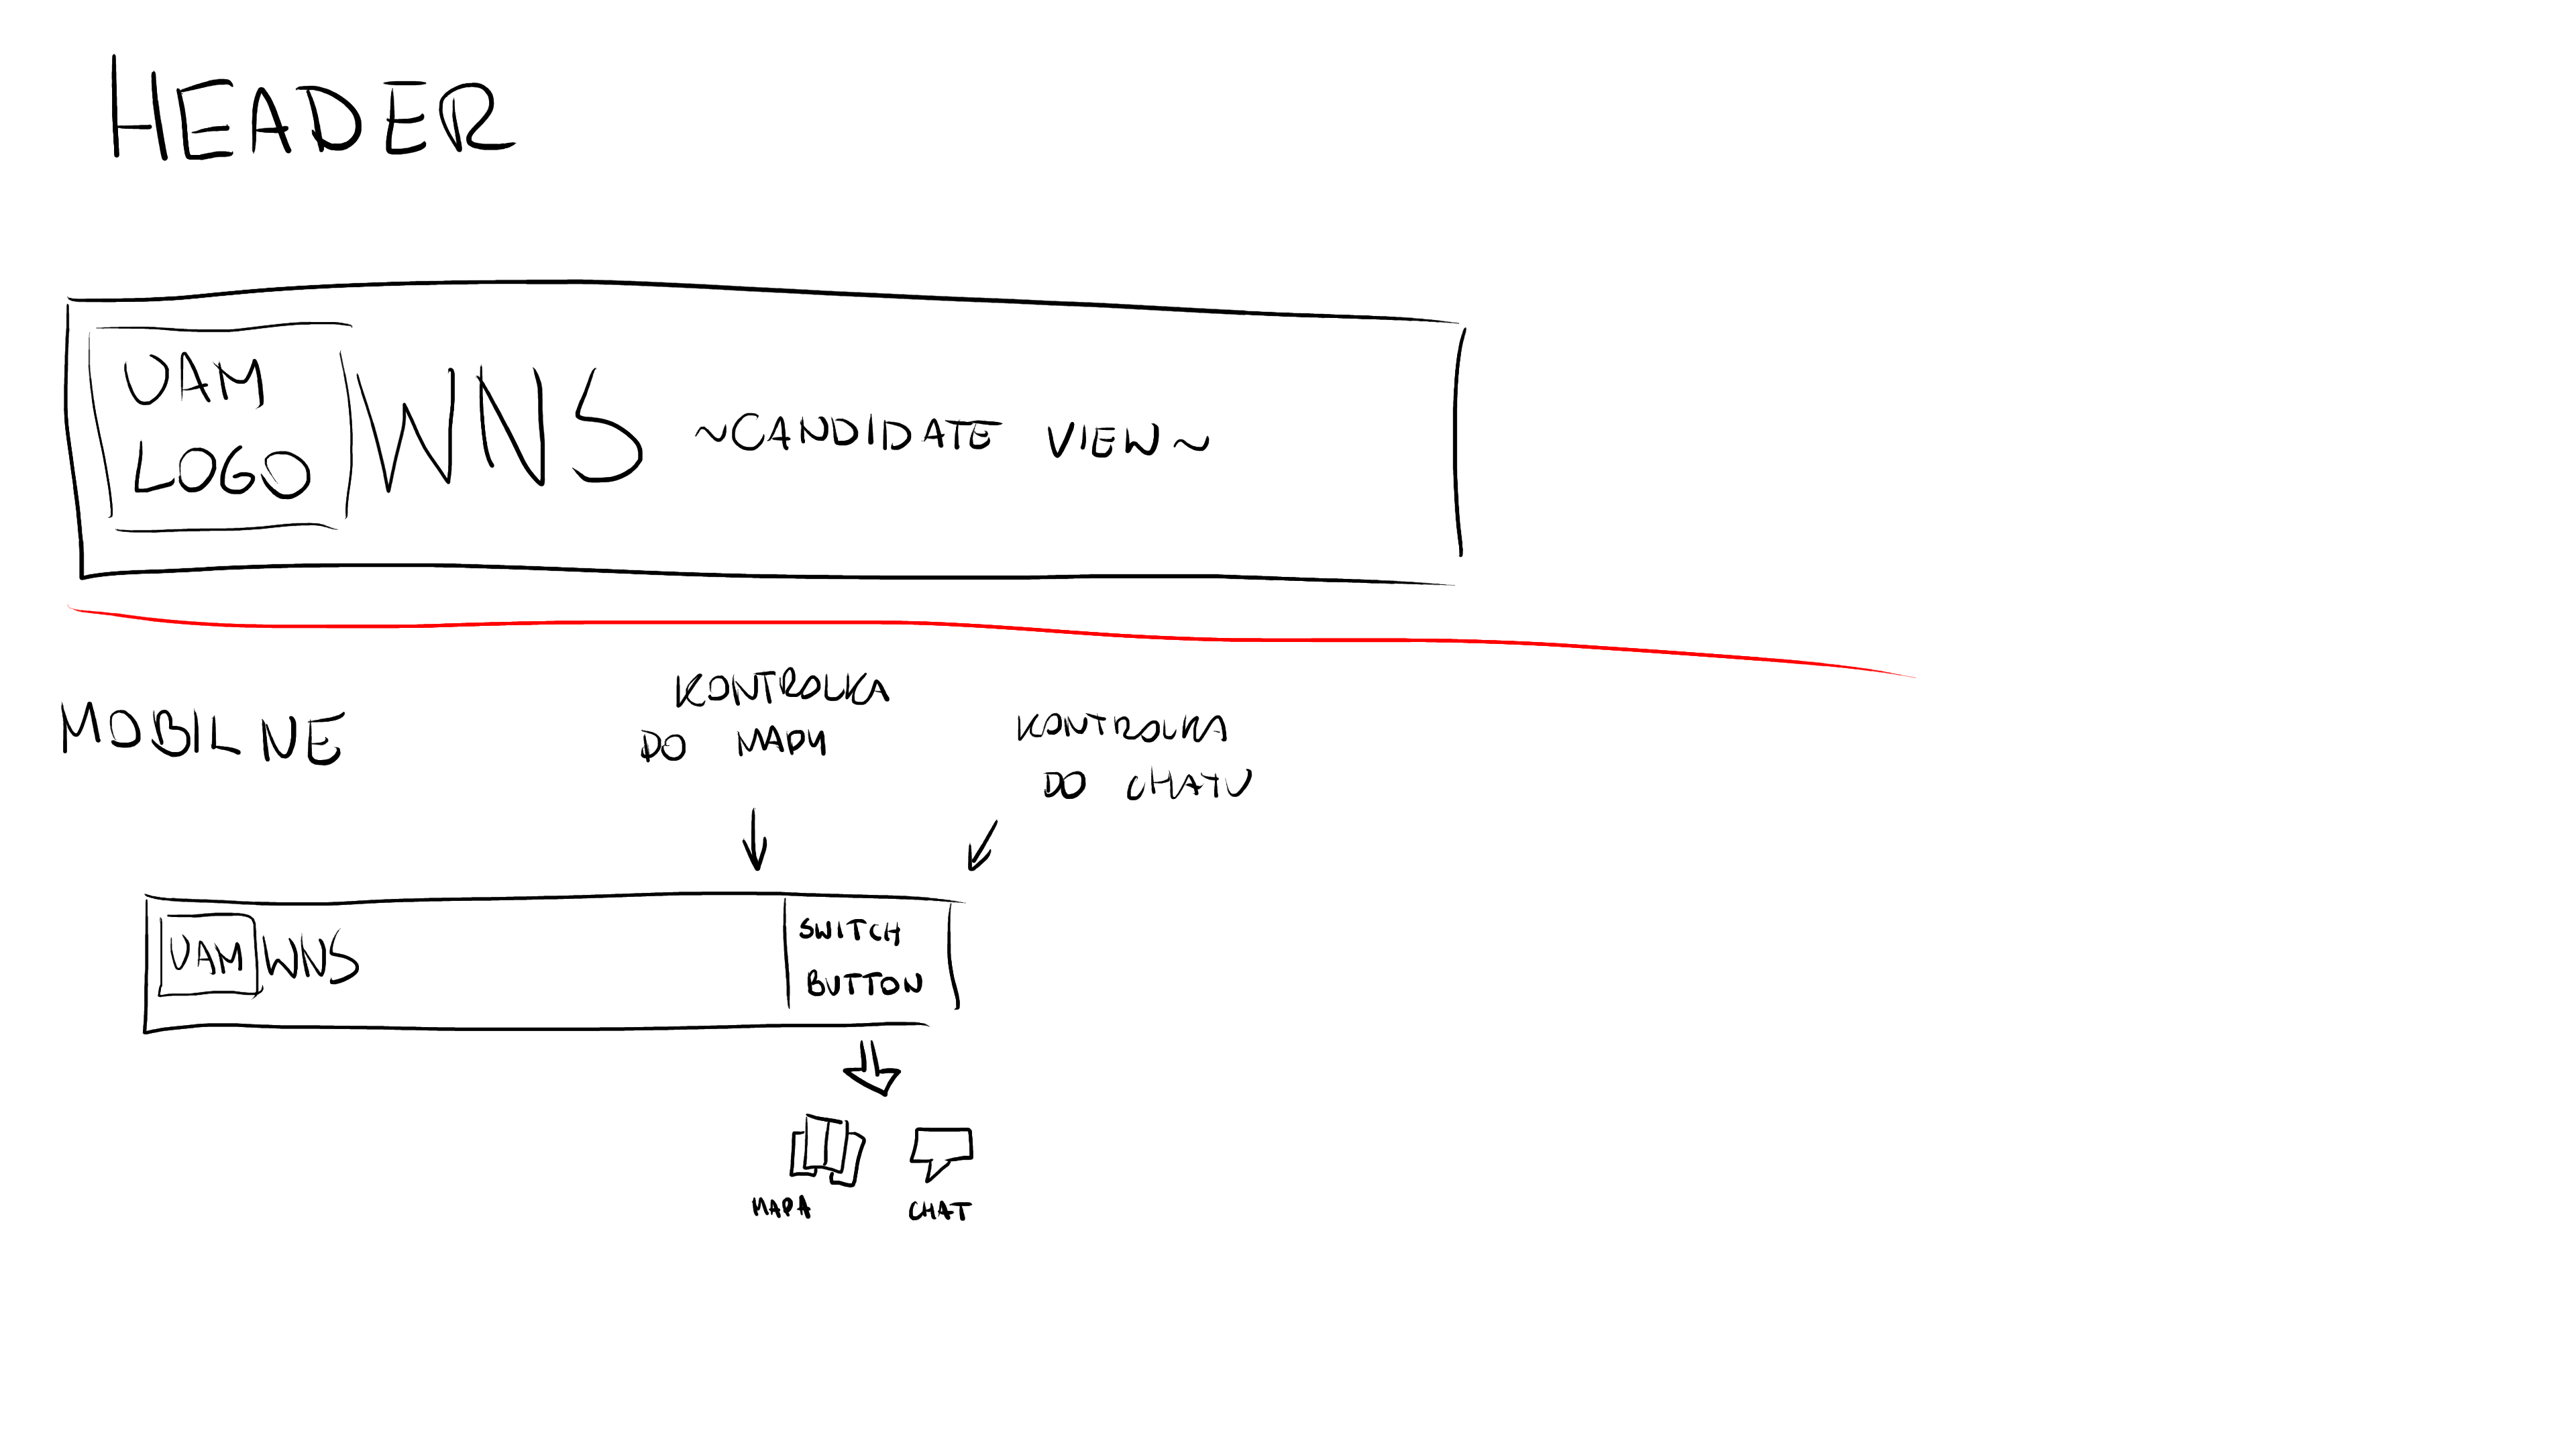 HEADER
UAM
LOGO
WNS ~CANDIDATE VIEW~
MOBILNE
KONTROLKA
DO MAPY
KONTROLKA
DO CHATU
UAM WNS
SWITCH
BUTTON
MAPA
CHAT